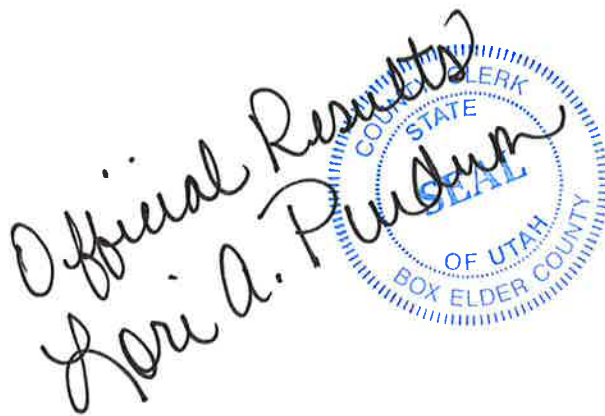 Official Results
Lori A. Purdum
COUNTY CLERK
STATE
SEAL
OF UTAH
BOX ELDER COUNTY